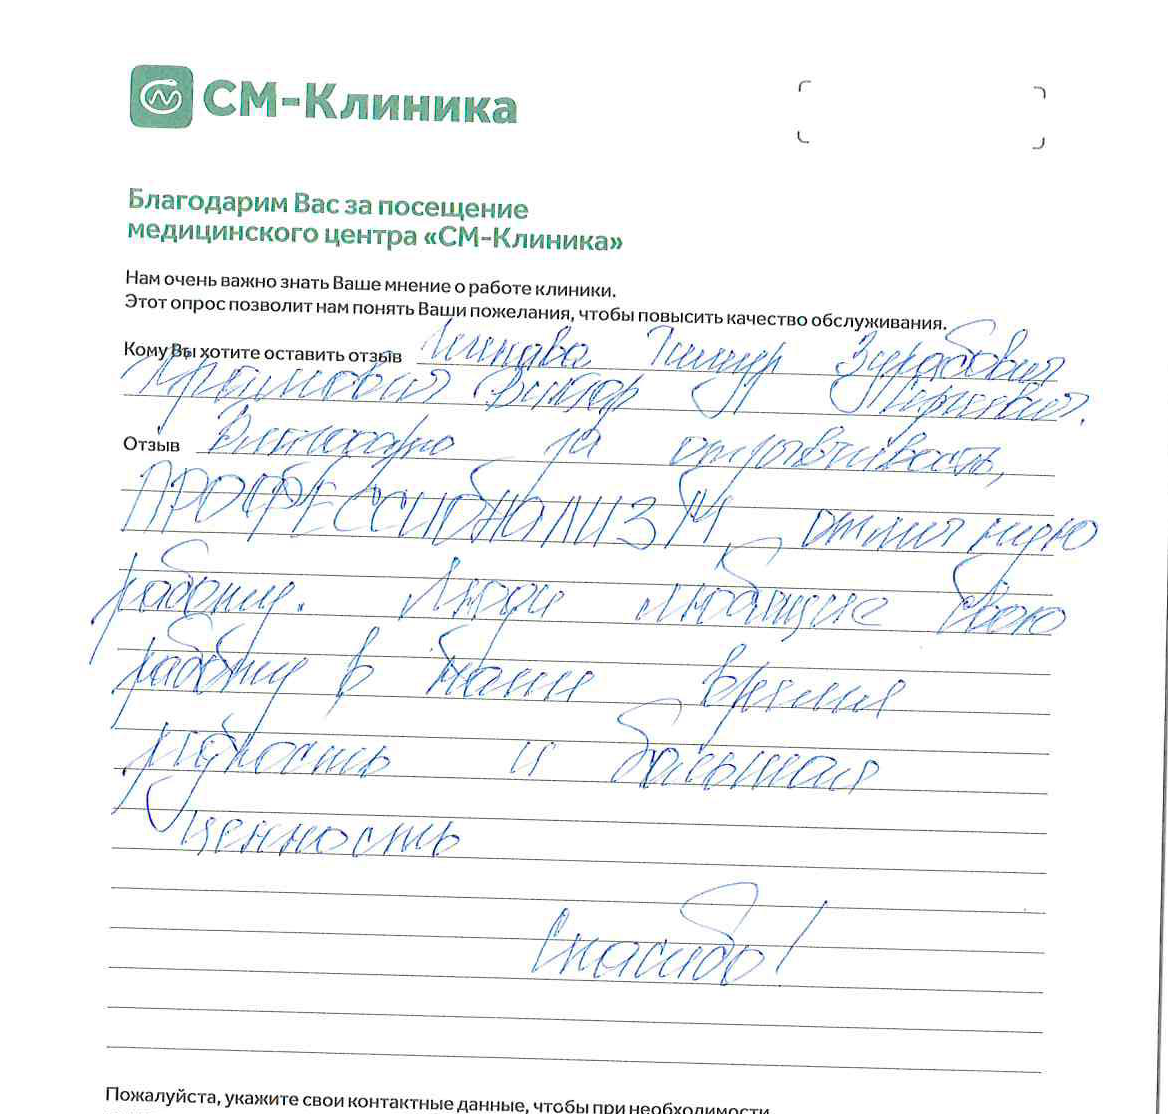 СМ-Клиника
Благодарим Вас за посещение
медицинского центра «СМ-Клиника»
Нам очень важно знать Ваше мнение о работе клиники.
Этот опрос позволит нам понять Ваши пожелания, чтобы повысить качество обслуживания.
Кому Вы хотите оставить отзыв Тимур Зурабович
Виктор
Отзыв Благодарю за отзывчивость,
ПРОФЕССИОНАЛИЗМ, отличную
работу. Люди любящие свою
работу в наше время
редкость и большая
ценность
Спасибо!
Пожалуйста, укажите свои контактные данные, чтобы при необходимости